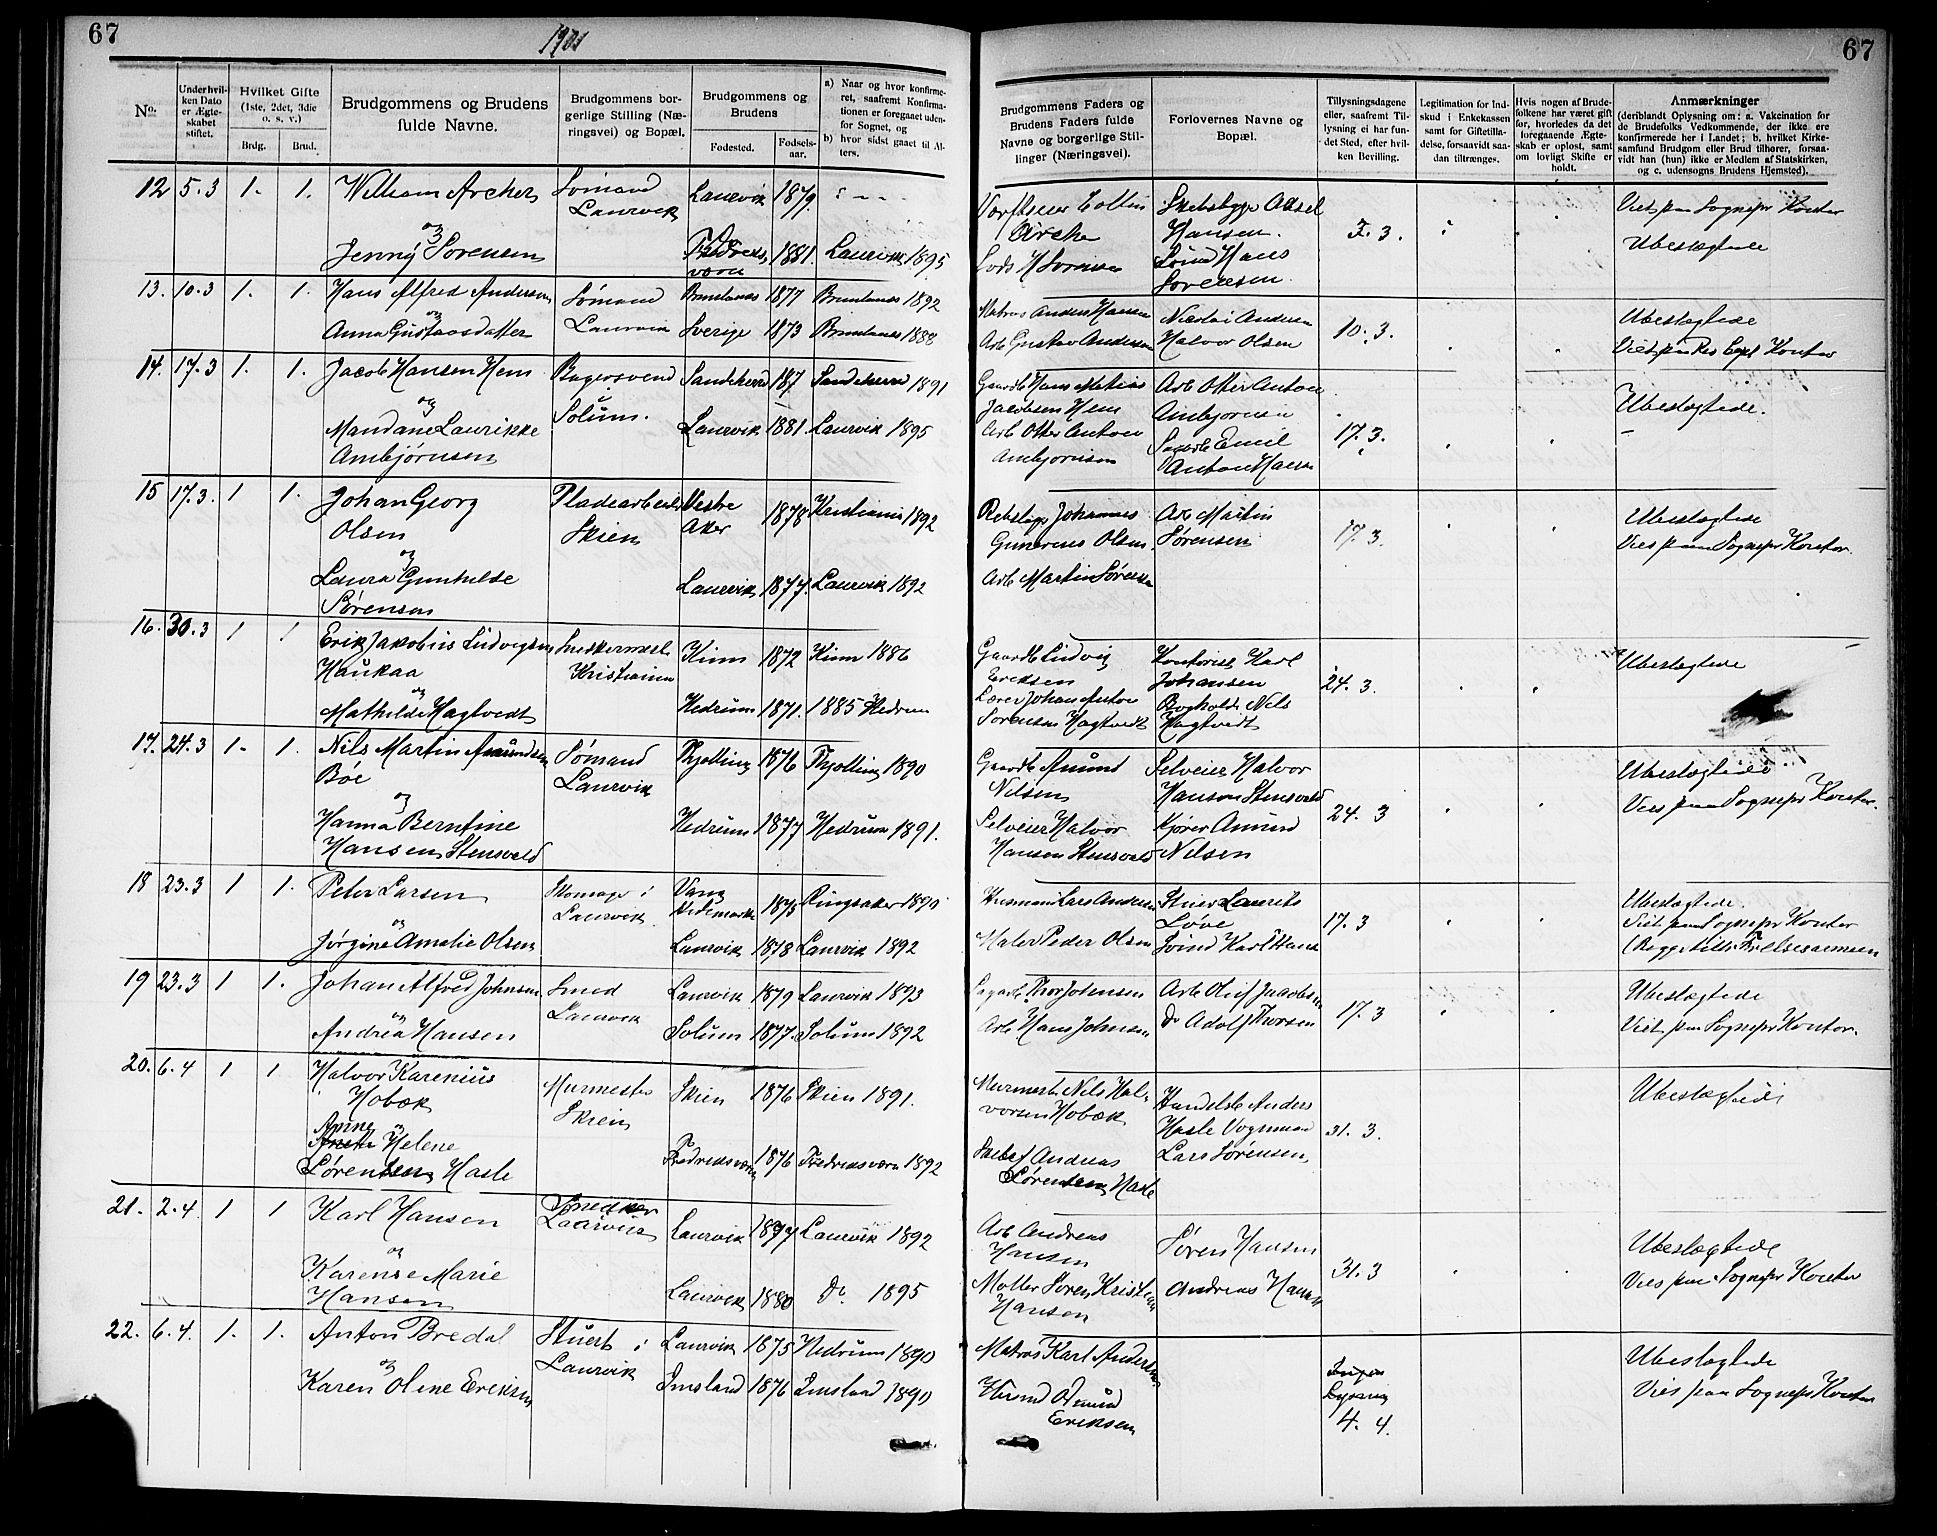 67
1901
67
No.
Under hvilken Dato er Ægteskabet stiftet.
Hvilket Gifte (1ste, 2det, 3die o. s. v.)
Brdg.
Brud.
Brudgommens og Brudens fulde Navne.
Brudgommens borgerlige Stilling (Næringsvei) og Bopæl.
Brudgommens og Brudens
Fødested.
Fødselsaar.
a) Naar og hvor konfirmeret, saafremt Konfirmationen er foregaaet udenfor Sognet, og
b) hvor sidst gaaet til Alters.
Brudgommens Faders og Brudens Faders fulde Navne og borgerlige Stillinger (Næringsvei).
Forlovernes Navne og Bopæl.
Tillysningsdagene eller, saafremt Tillysning ei har fundet Sted, efter hvilken Bevilling.
Legitimation for Indskud i Enkekassen samt for Giftetilladelse, forsaavidt saadan tiltrænges.
Hvis nogen af Brudefolkene har været gift før, hvorledes da det foregaaende Ægteskab er opløst, samt om lovligt Skifte er holdt.
Anmærkninger
(deriblandt Oplysning om: a. Vakcination for de Brudefolks Vedkommende, der ikke ere konfirmerede her i Landet; b. hvilket Kirkesamfund Brudgom eller Brud tilhører, forsaavidt han (hun) ikke er Medlem af Statskirken, og c. udensogns Brudens Hjemsted).
12 5.3 1. 1. William Archer Sømand Laurvik Laurvik 1879
og
Jenny Sorensen Fredriksværn 1881. Laurvik 1895
Archer Hansen. 3. Viet paa Sognepr Kontor
Lods H Sorensen Hans Sorensen Ubeslægtede
13. 10.3 1. 1. Hans Alfred Andersen Sømand Laurvik Brunlanes 1877 Brunlanes 1892
og
Anna Gustavsdatter Sverige 1873 Brunlanes 1888
Matros Anders Hansen Nicolai Andersen 10.3. Ubeslægtede
Arb Gustav Andersen Halvor Olsen Viet paa Res Kapl Kontor
14. 17.3 1. 1. Jacob Hansen Hem Bagersvend Solum. Sandeherred 187 Sandeherred 1891
og
Mandane Laurikke Ambjørnsen Laurvik 1881. Laurvik 1895
Gaardb Hans Mathias Jacobsen Hem Arb Otter Anton Ambjornsen 17.3. Ubeslægtede.
Arb Otter Anton Ambjornsen Emil Anton Hansen
15 17.3. 1 1. Johan Georg Olsen Pladearbeider Skien Vestre Aker 1878 Kristiania 1892
og
Laura Gunhilde Sørensen Laurvik 1877. Laurvik 1892
Johannes Gunerius Olsen. Arb Martin Sørensen 17.3. Ubeslægtede
Arb Martin Sørensen Vies paa Sognepr Kontor.
16. 30.3 1 1 Erik Jakobus Ludvigsen Haukaa Snekkermest Kristiania Kinn 1872 Kinn 1886
og
Mathilde Hagtvedt Hedrum 1871. 1885 Hedrum
Gaardb Ludvig Eriksen Kontorist Karl Johansen 24.3. Ubeslægtede
Lærer Johan Anton Sorensen Hagtvedt Bogholder Nils Hagtvedt
17. 24.3 1. 1. Nils Martin Amundsen Bøe Sømand Laurvik Thjølling 1876 Thjølling 1890
og
Hanna Berntine Hansen Stensvold Hedrum 1877 Hedrum 1891.
Gaardb Amund Nilsen Selveier Halvor Hanson Stensvold 24.3 Ubeslægtede
Selveier Halvor Hansen Stensvold Kjører Amund Nilsen Vies paa Sognepr Kontor.
18 23.3 1 1. Peter Larsen Skomager i Laurvik Vang Hedemarken 1875 Ringsaker 1890
og
Jørgine Amalie Olsen Laurvik 1878 Laurvik 1892
Husmand Lars Andersen Laurits Løve 17.3 Ubeslægtede.
Maler Peder Olsen Karl Viet paa Sognepr Kontor
(Begge tilh. Frelsesarmeen
19 23.3 1 1. Johan Alfred Johnsen Smed Laurvik Laurvik 1879 Laurvik 1893
og
Andrea Hansen Solum 1877. Solum 1892
Thor Johnsen Arb Oluf Jacobsen 17.3 Ubeslægtede
Arb Hans Johnsen Do Adolf Thorsen Viet paa Sognepr Kontor.
20. 6.4 1 1 Halvor Karenius Hobæk Murmester Skien Skien 1876 Skien 1891.
og
Anne Helene Sørensen Hasle Fredriksværn 1876 Fredriksværn 1892
Murmest Nils Halvorsen Hobæk Handelsb Anders Hasle 31.3. Ubeslægtede
Andreas Sørensen Hasle Vognmand Lars Sørensen
21. 2.4 1 1 Karl Hansen Snedker Laurvik Laurvik 1877 Laurvik 1892
og
Karense Marie Hansen Laurvik 1880 Do 1895
Arb Andreas Hansen Søren Hansen 31.3 Ubeslægtede
Møller Søren Kristian Hansen Andreas Hansen Vies paa Sognepr Kontor
22. 6.4. 1. 1. Anton Bredal Stuert i Laurvik Laurvik 1875 Hedrum 1890
og
Karen Oline Eriksen Imsland 1876 Imsland 1890
Matros Karl Andersen Ingen Lysning 4.4. Ubeslægtede
Eriksen Vies paa Sognepr Kontor